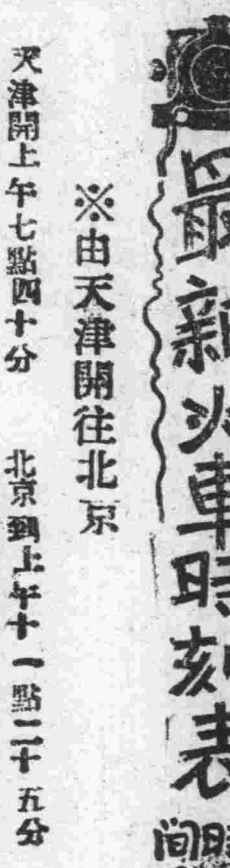 最新火車時刻表
時間
※由天津開往北京
天津開上午七點四十分　北京到上午十一點二十五分